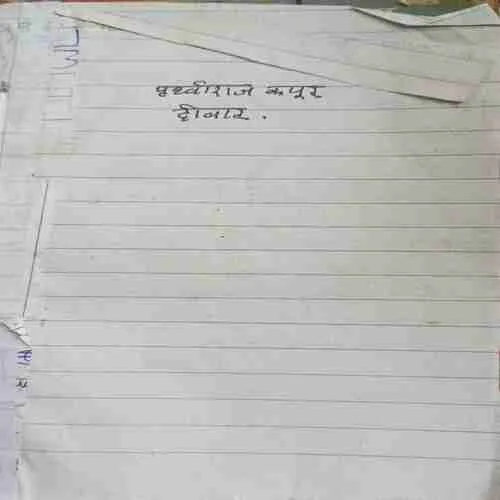 पृथ्वीराज कपूर
दीवार.